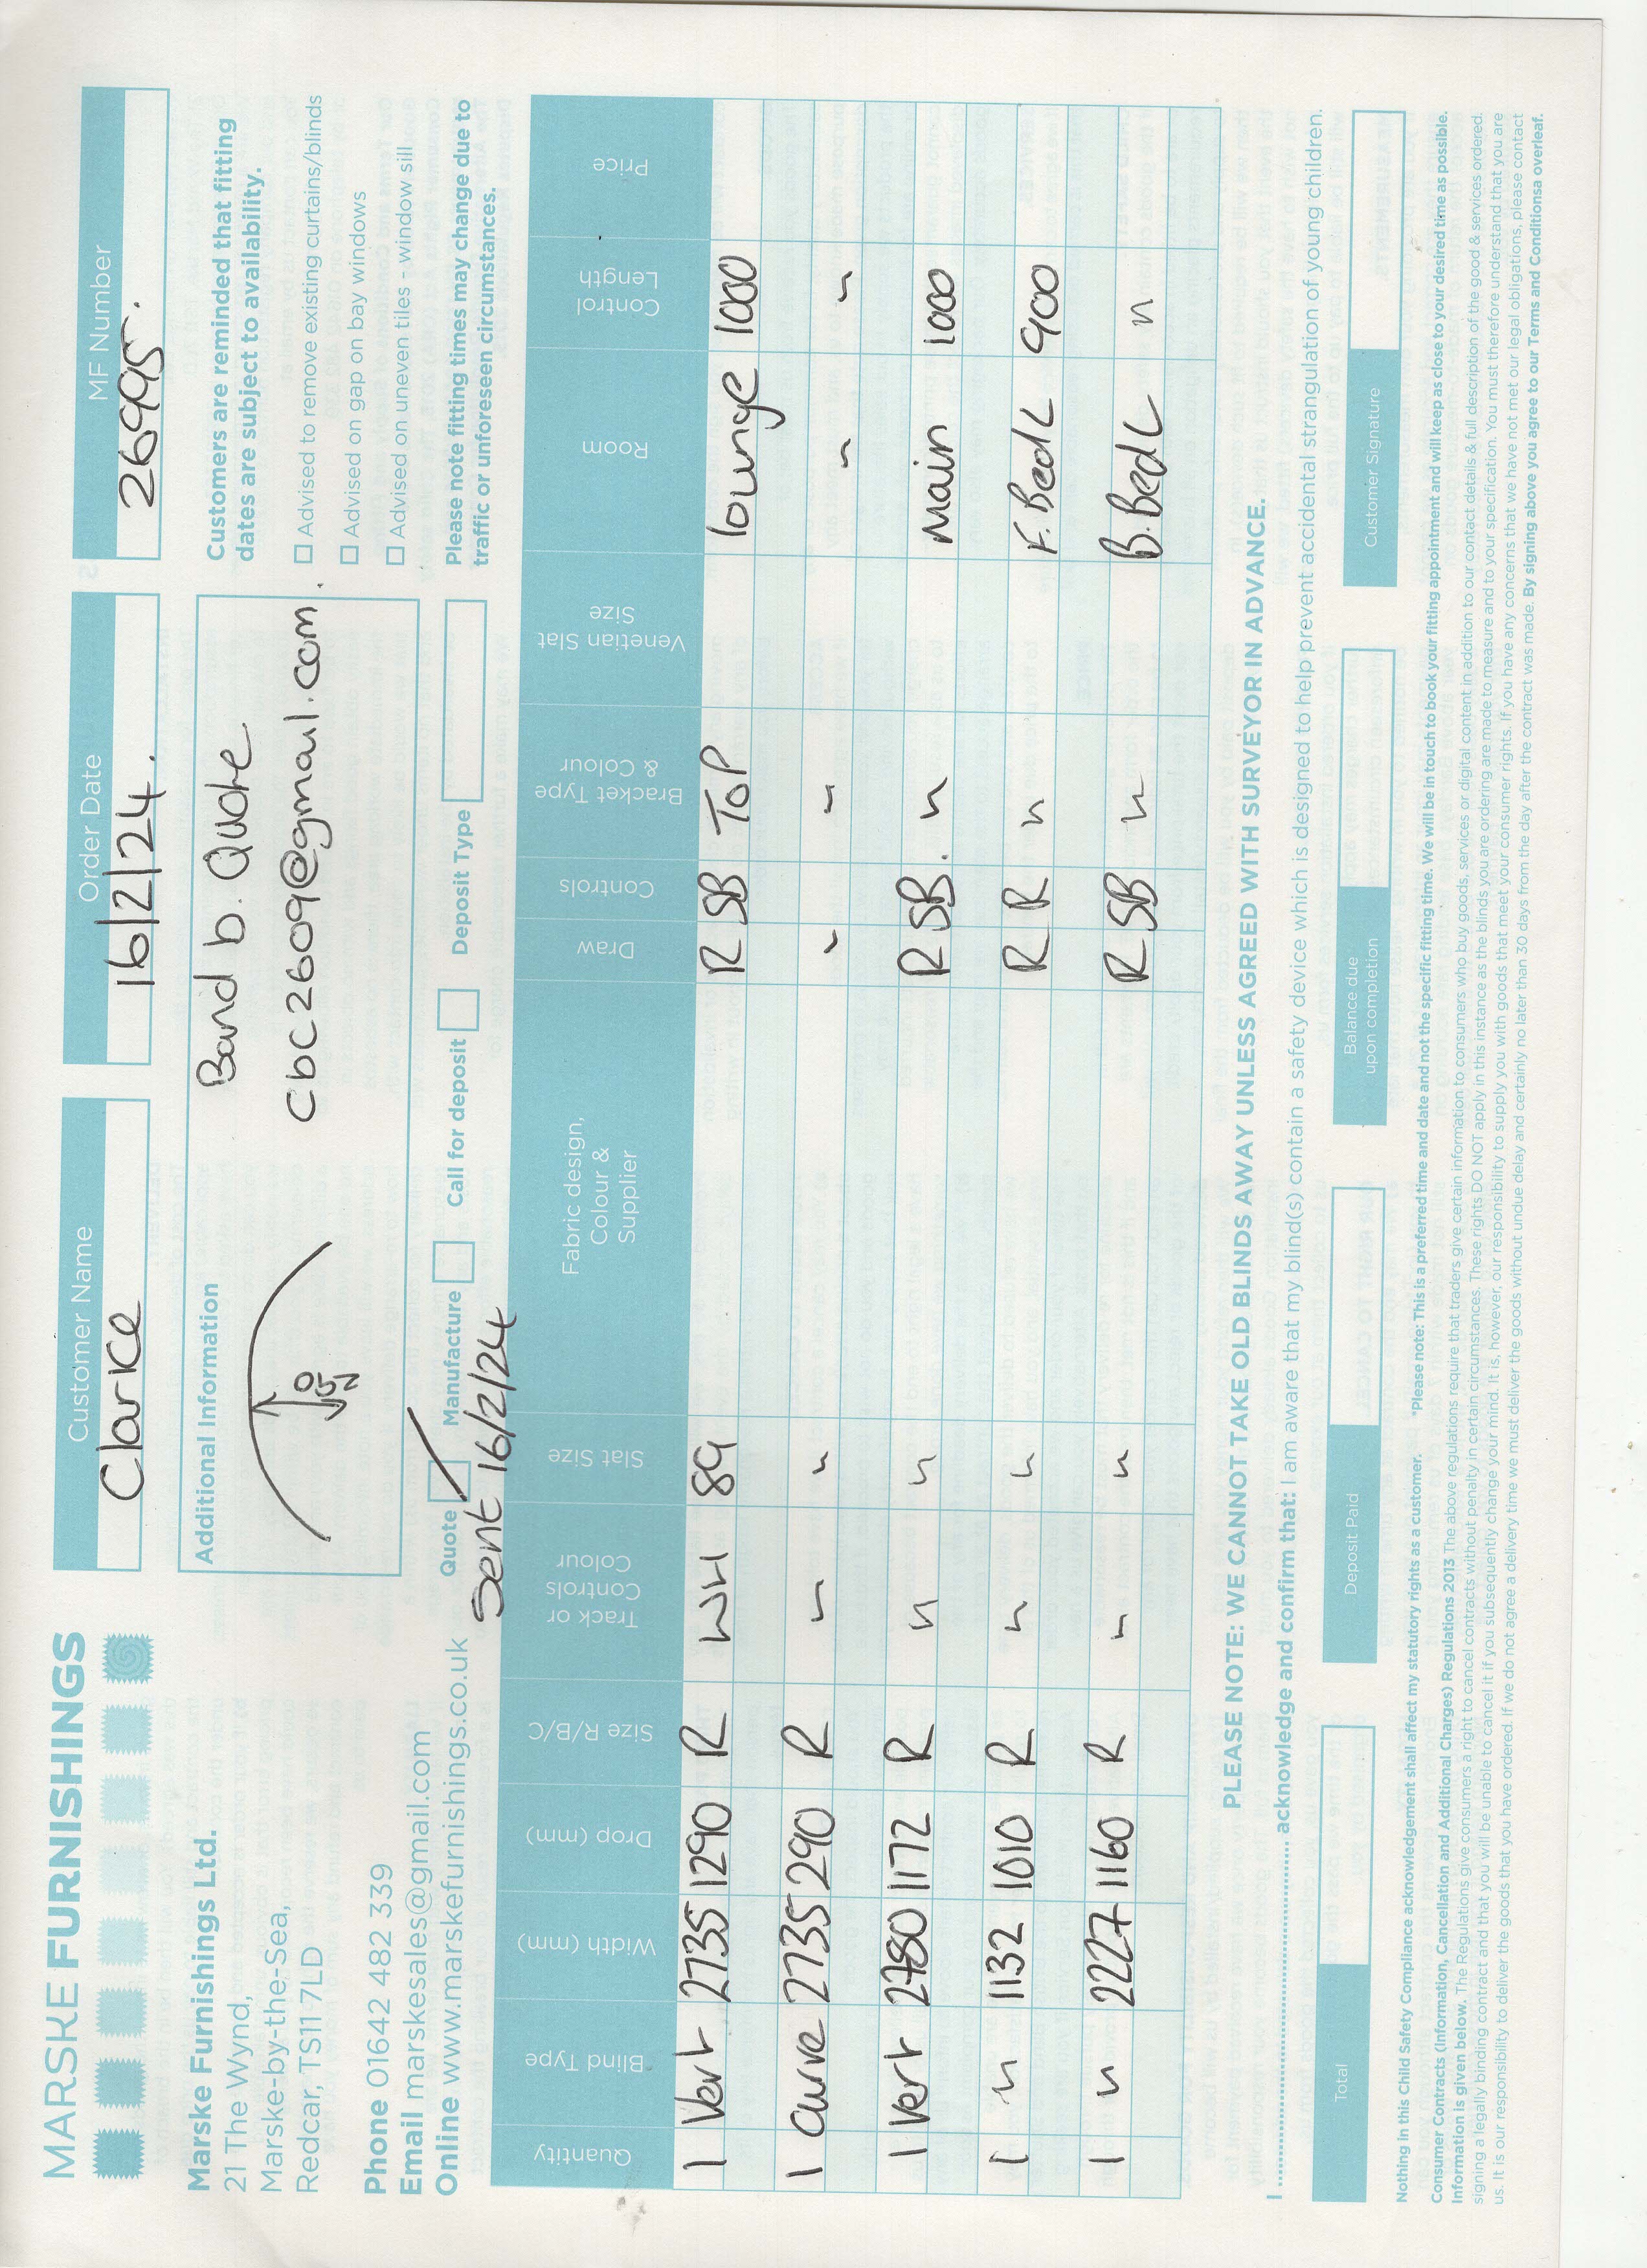 MARSKE FURNISHINGS
Marske Furnishings Ltd.
21 The Wynd,
Marske-by-the-Sea,
Redcar, TS11 7LD
Phone 01642 482 339
Email marskesales@gmail.com
Online www.marskefurnishings.co.uk
Customer Name
Clarice
Order Date
16/2/24.
MF Number
26995.
Additional Information
Band b. Quote
cbc2609@gmail.com.
Customers are reminded that fitting
dates are subject to availability.
Advised to remove existing curtains/blinds
Advised on gap on bay windows
Advised on uneven tiles - window sill
Please note fitting times may change due to
traffic or unforeseen circumstances.
Quote Manufacture Call for deposit Deposit Type
Sent 16/2/24
Quantity Blind Type Width (mm) Drop (mm) Size R/B/C Track or Controls Colour Slat Size Fabric design, Colour & Supplier Draw Controls Bracket Type & Colour Venetian Slat Size Room Control Length Price
1 Vert 2735 1290 R WH 89 R SB TOP lounge 1000
1 Curve 2735 290 R " " " " " "
1 Vert 2780 1172 R " " R SB. " Main 1000
1 " 1132 1010 R " " R R " F.BedL 900
1 " 2227 1160 R " " R SB " B.BedL "
PLEASE NOTE: WE CANNOT TAKE OLD BLINDS AWAY UNLESS AGREED WITH SURVEYOR IN ADVANCE.
I .......... acknowledge and confirm that: I am aware that my blind(s) contain a safety device which is designed to help prevent accidental strangulation of young children.
Total
Deposit Paid
Balance due
upon completion
Customer Signature
Nothing in this Child Safety Compliance acknowledgement shall affect my statutory rights as a customer. *Please note: This is a preferred time and date and not the specific fitting time. We will be in touch to book your fitting appointment and will keep as close to your desired time as possible.
Consumer Contracts (Information, Cancellation and Additional Charges) Regulations 2013 The above regulations require that traders give certain information to consumers who buy goods, services or digital content in addition to our contact details & full description of the good & services ordered.
Information is given below. The Regulations give consumers a right to cancel contracts without penalty in certain circumstances. These rights DO NOT apply in this instance as the blinds you are ordering are made to measure and to your specification. You must therefore understand that you are
signing a legally binding contract and that you will be unable to cancel it if you subsequently change your mind. It is, however, our responsibility to supply you with goods that meet your consumer rights. If you have any concerns that we have not met our legal obligations, please contact
us. It is our responsibility to deliver the goods that you have ordered. If we do not agree a delivery time we must deliver the goods without undue delay and certainly no later than 30 days from the day after the contract was made. By signing above you agree to our Terms and Conditionsa overleaf.